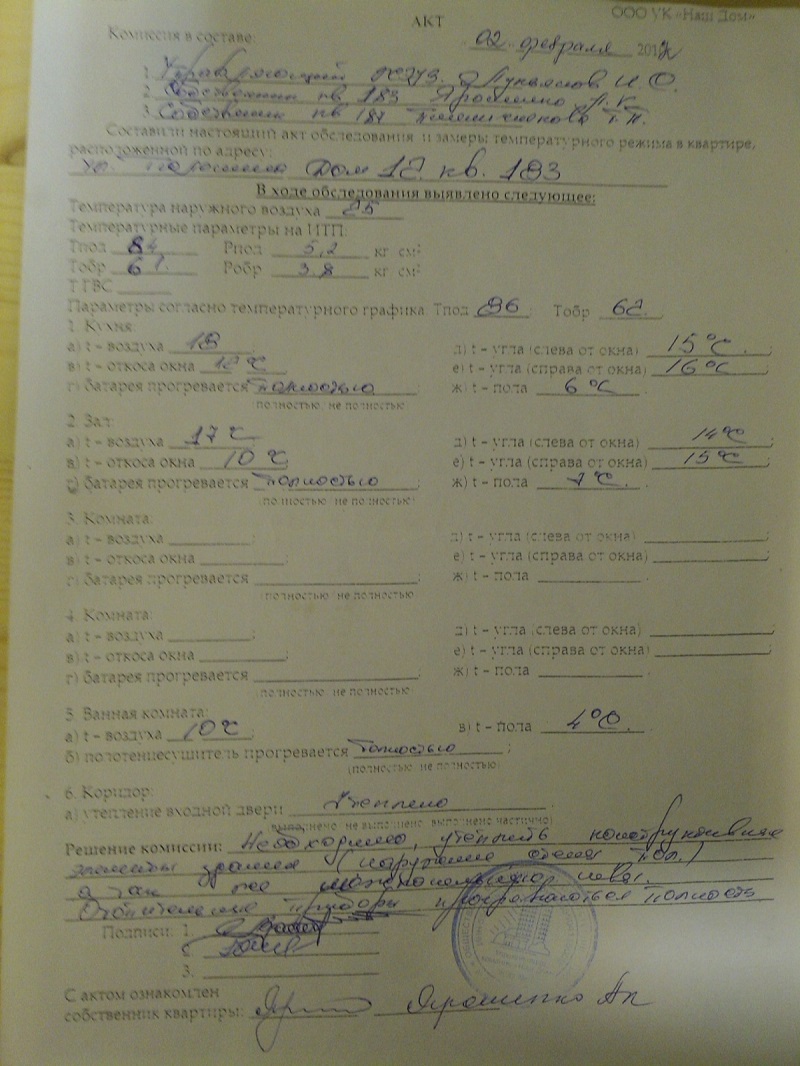 ООО УК «Наш Дом»
АКТ
Комиссия в составе:
02 февраля 2012
1. Управляющий Лукьянов И.О.
2. Собственник кв. 183 Ярошенко А.К.
3. Собственник кв 187 Т.Н.
Составили настоящий акт обследования и замеры температурного режима в квартире,
расположенной по адресу:
ул. Дом 12 кв. 183
В ходе обследования выявлено следующее:
Температура наружного воздуха 25
Температурные параметры на ИТП:
Тпод 84 Рпод 5,2 кг см²
Тобр 61. Робр 3.8 кг см²
Т ГВС
Параметры согласно температурного графика: Тпод 96 Тобр 62.
1. Кухня:
а) t – воздуха 18 д) t – угла (слева от окна) 15°С.
в) t – откоса окна 12°С е) t – угла (справа от окна) 16°С
г) батарея прогревается полностью ж) t – пола 6°С
(полностью не полностью
2. Зал:
а) t – воздуха 17°С д) t – угла (слева от окна) 14°С
в) t – откоса окна 10°С е) t – угла (справа от окна) 15°С
г) батарея прогревается полностью ж) t – пола 7°С.
(полностью не полностью)
3. Комната:
а) t – воздуха д) t – угла (слева от окна)
в) t – откоса окна е) t – угла (справа от окна)
г) батарея прогревается ж) t – пола
(полностью не полностью
4. Комната:
а) t – воздуха д) t – угла (слева от окна)
в) t – откоса окна е) t – угла (справа от окна)
г) батарея прогревается ж) t – пола
(полностью не полностью)
5. Ванная комната:
а) t – воздуха 10°С в) t – пола 4°С.
б) полотенцесушитель прогревается полностью
(полностью не полностью)
6. Коридор:
а) утепление входной двери Утеплено
выполнено не выполнено выполнено частично)
Решение комиссии: Необходимо, утеплить конструктивные
элементы здания (наружные стены пол.)
а так же швы.
Отопительные приборы прогреваются полность
Подписи: 1.
2.
3.
С актом ознакомлен
собственник квартиры: Ярошенко Ак